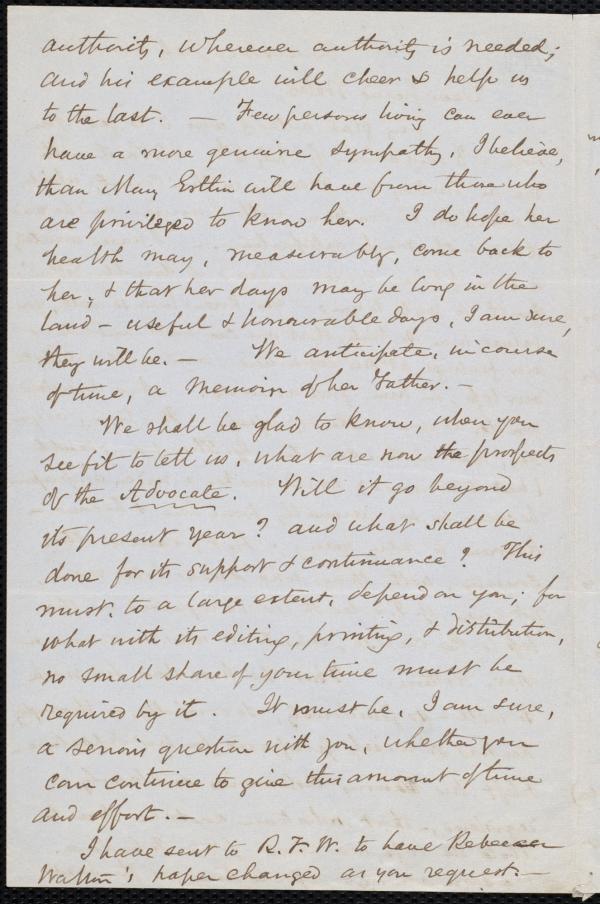 authority, wherever authority is needed;
and his example will cheer & help us
to the last. — Few persons living can ever
have a more genuine sympathy, I believe,
than Mary Estlin will have from those who
are privileged to know her. I do hope her
health may, measurably, come back to
her, & that her days may be long in the
land – useful & honourable days, I am sure,
they will be. — We anticipate, in course
of time, a Memoir of her Father. —
We shall be glad to know, when you
see fit to tell us, what are now the prospects
of the Advocate. Will it go beyond
its present year? and what shall be
done for its support & continuance? This
must, to a large extent, depend on you; for
what with its editing, printing, & distribution,
no small share of your time must be
required by it. It must be, I am sure,
a serious question with you, whether you
can continue to give this amount of time
and effort. —
I have sent to R. F. W. to have Rebecca
's paper changed as you request. —